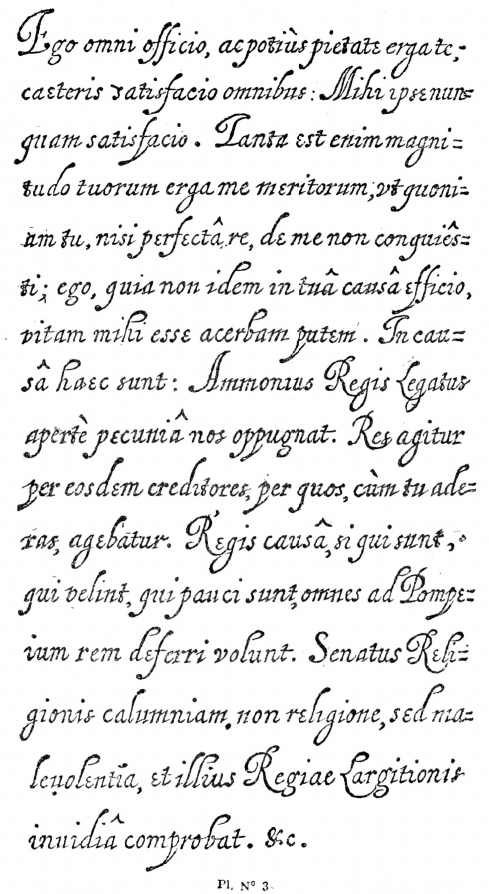 Ego omni officio, ac potiùs pietate erga te,
caeteris satisfacio omnibus: Mihi ipse nun=
quam satisfacio. Tanta est enim magni=
tudo tuorum erga me meritorum, vt quoni=
am tu, nisi perfectâ re, de me non conquiês=
ti; ego, quia non idem in tuâ causâ efficio,
vitam mihi esse acerbam putem. In cau=
sâ haec sunt: Ammonius Regis Legatus
apertè pecuniâ nos oppugnat. Res agitur
per eosdem creditores, per quos, cùm tu ade=
ras, agebatur. Regis causâ, si qui sunt,
qui velint, qui pauci sunt, omnes ad Pompe=
ium rem deferri volunt. Senatus Reli=
gionis calumniam, non religione, sed ma=
leuolentia, et illius Regiae Largitionis
inuidiâ comprobat. &c.
Pl. Nº 3.